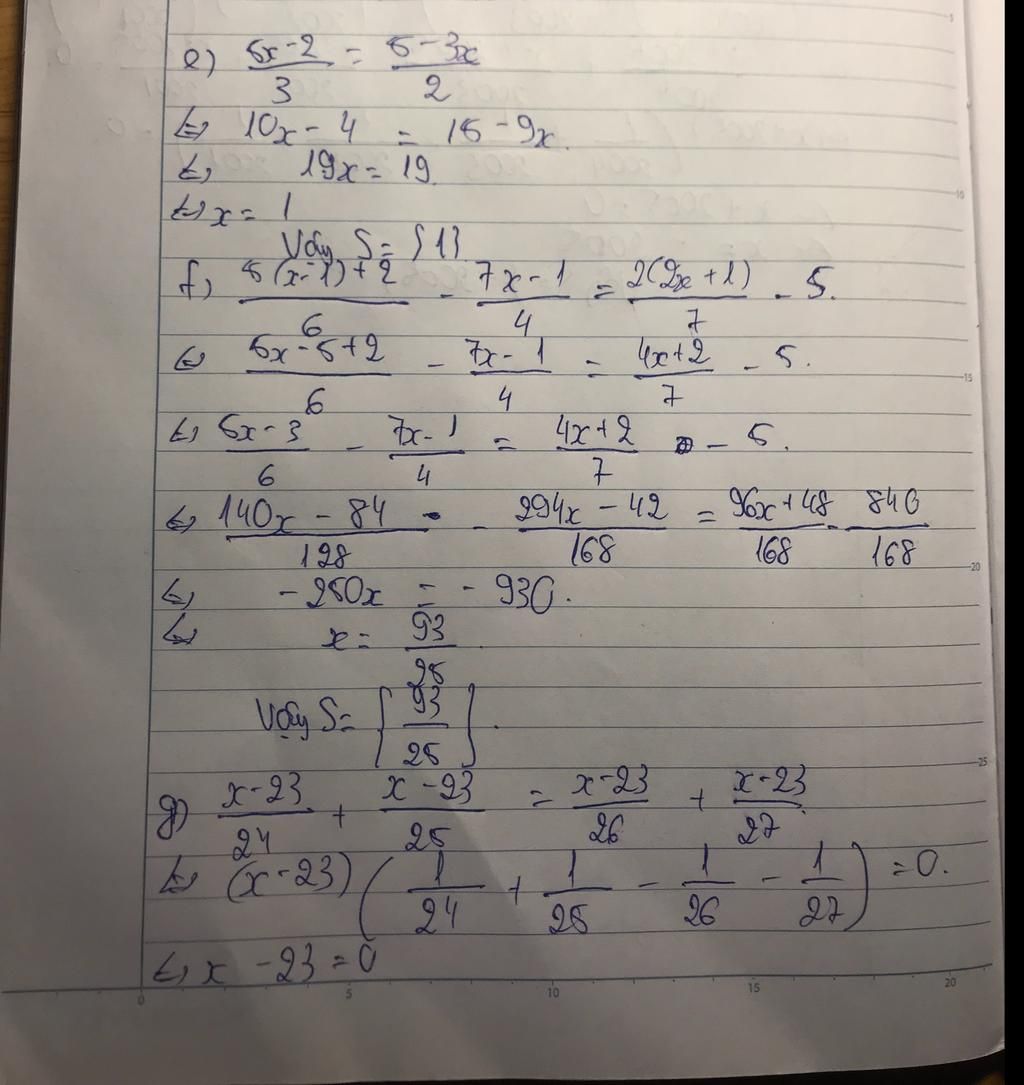 e) (5x-2)/3 = (5-3x)/2
<=> 10x - 4 = 15 - 9x.
<=> 19x = 19.
<=> x = 1
Vậy S = {1}
f) (5(x-1)+2)/6 - (7x-1)/4 = (2(2x+1))/7 - 5.
<=> (5x-5+2)/6 - (7x-1)/4 = (4x+2)/7 - 5.
<=> (5x-3)/6 - (7x-1)/4 = (4x+2)/7 - 5.
<=> (140x - 84)/128 - (294x - 42)/168 = (96x+48)/168 - 840/168
<=> -250x = -930.
<=> x = 93/25
Vậy S = {93/25}.
g) (x-23)/24 + (x-23)/25 = (x-23)/26 + (x-23)/27.
<=> (x-23)(1/24 + 1/25 - 1/26 - 1/27) = 0.
<=> x - 23 = 0
0 5 10 15 20